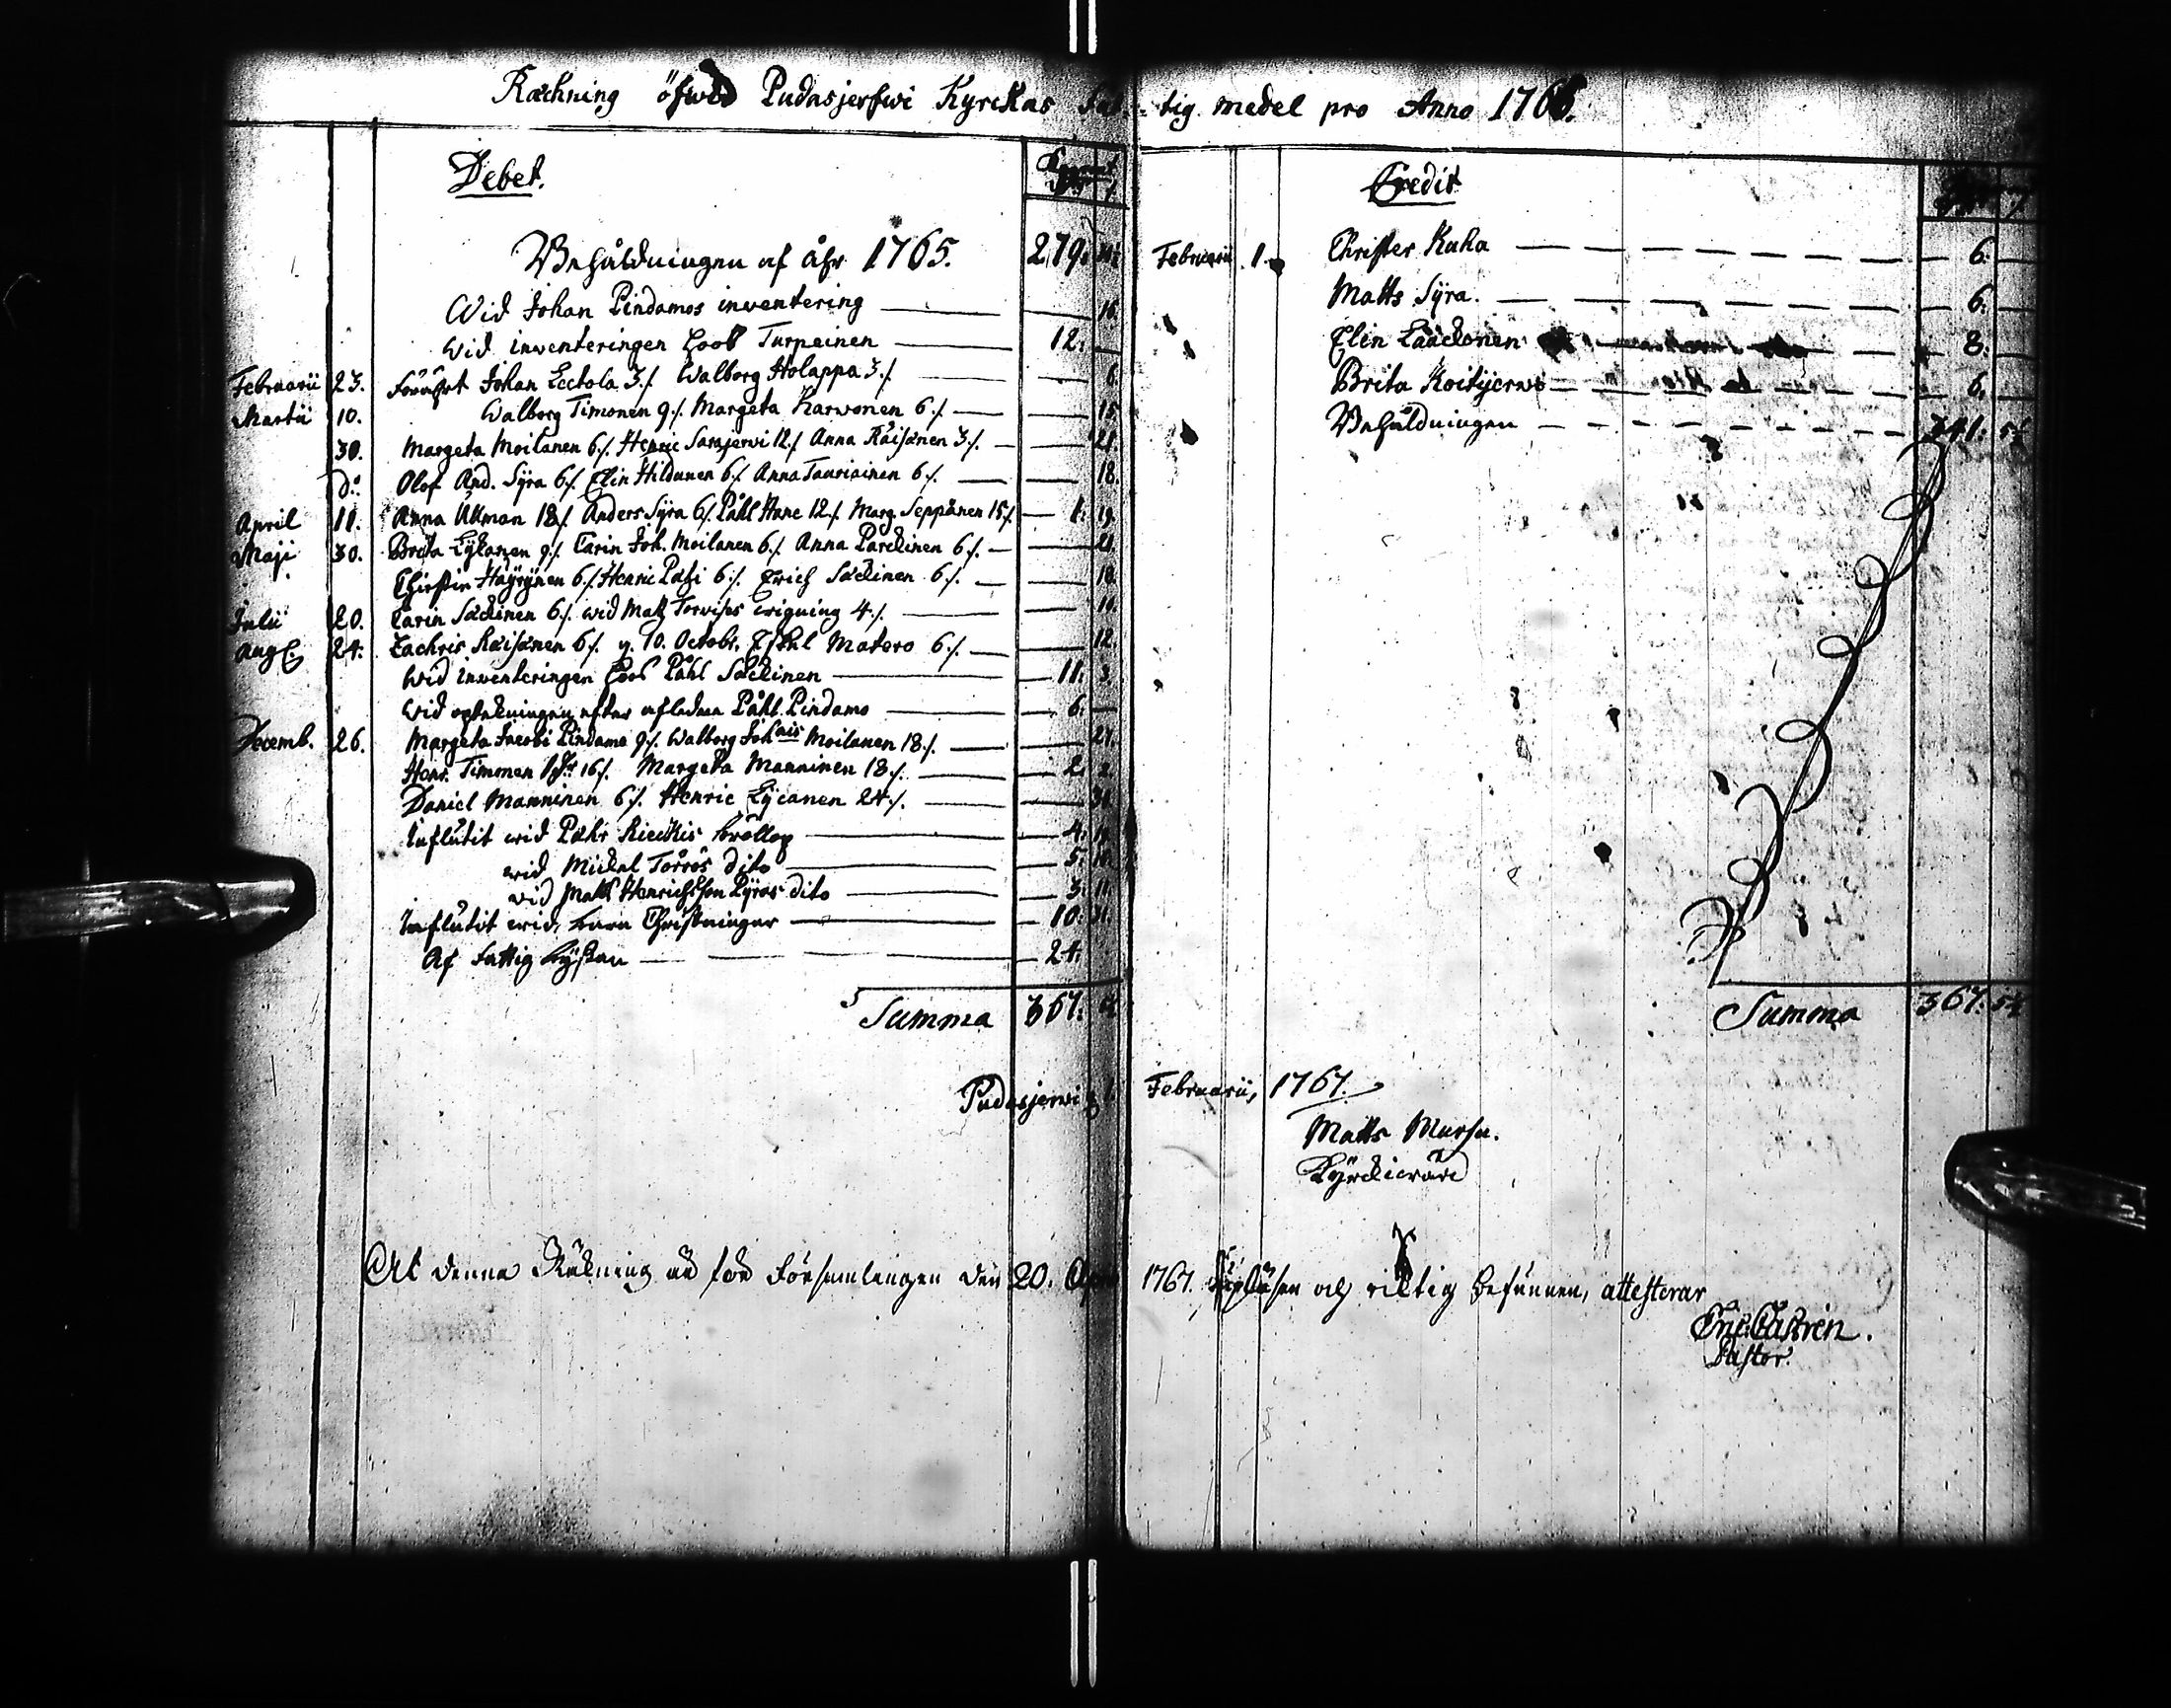 Räckning öfwer Pudasjerfwi Kyrckas Fattig medel pro Anno 1766.
Debet.
Behåldningen af åhr 1765. 279.
Wid Johan Pindamos inventering 16.
Wid inventeringen hoos Turpeinen 12.
Februarii 23. förährt Johan Lectola 3./. Walborg Holappa 3./. 6.
Martii 10. Walborg Timonen 9./. Margeta Karwonen 6./. 15.
30. Margeta Moilanen 6./. Henric Sarajerwi 12./. Anna Räisänen 3./. 21.
d:o Olof And. Syrä 6./. Elin Hildunen 6./. Anna Tauriainen 6./. 18.
April 11. Anna Ukman 18./. Anders Syrä 6./. Påhl Hane 12./. Marg. Seppänen 15./. 1. 19.
Maji 30. Brita Lykanen 9./. Carin Joh. Moilanen 6./. Anna Parckinen 6./. 21.
Christin Häyrynen 6./. Henric Pätsi 6./. Erich Säckinen 6./. 18.
Julii 20. Carin Säckinen 6./. wid Matz Torvises wigning 4./. 10.
Aug. 24. Zachris Räisänen 6./. 10. Octobr. Eskel Matero 6./. 12.
Wid inventeringen hoos Påhl Säckinen 11. 3.
Wid uptekningen efter afledne Påhl Pindamo 6.
Decemb. 26. Margeta Jacobi Pindamo 9./. Walborg Johais Moilanen 18./. 27.
Henr. Timonen 16./. Margeta Manninen 18./. 2. 2.
Daniel Manninen 6./. Henric Lycanen 24./. 30.
Influtit wid Pähr Rieckis bröllop 4.
wid Mickel Törrös dito 5.
wid Matts Henrichsson Pyräs dito 3. 11.
Influtit wid barn Christningar 10.
Af Fattig byssan 24.
Summa 367. 5½
Credit
Februarii 1. Christer Kuha 6.
Matts Syrä. 6.
Elin Lääckönen 8.
Brita Koitijerwi 6.
Behåldningen 341. 5½
Summa 367. 5½
Pudasjerwi d. 1. Februarii, 1767.
Matts Mursu.
Kyrckiewärd
At denna Räkning är för Församlingen den 20. Apr. 1767. upläsen och riktig befunnen, attesterar
Eric Castrén.
Pastor.